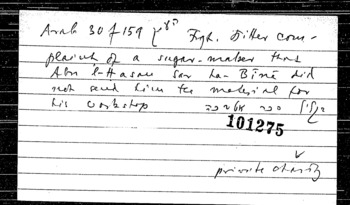 Arab 30 f 159 Bitter com-
plaint of a sugar-maker that
Abu l-Hasan Sar ha-Bīnā did
not send him the material for
his workshop סכר
101275
private charity